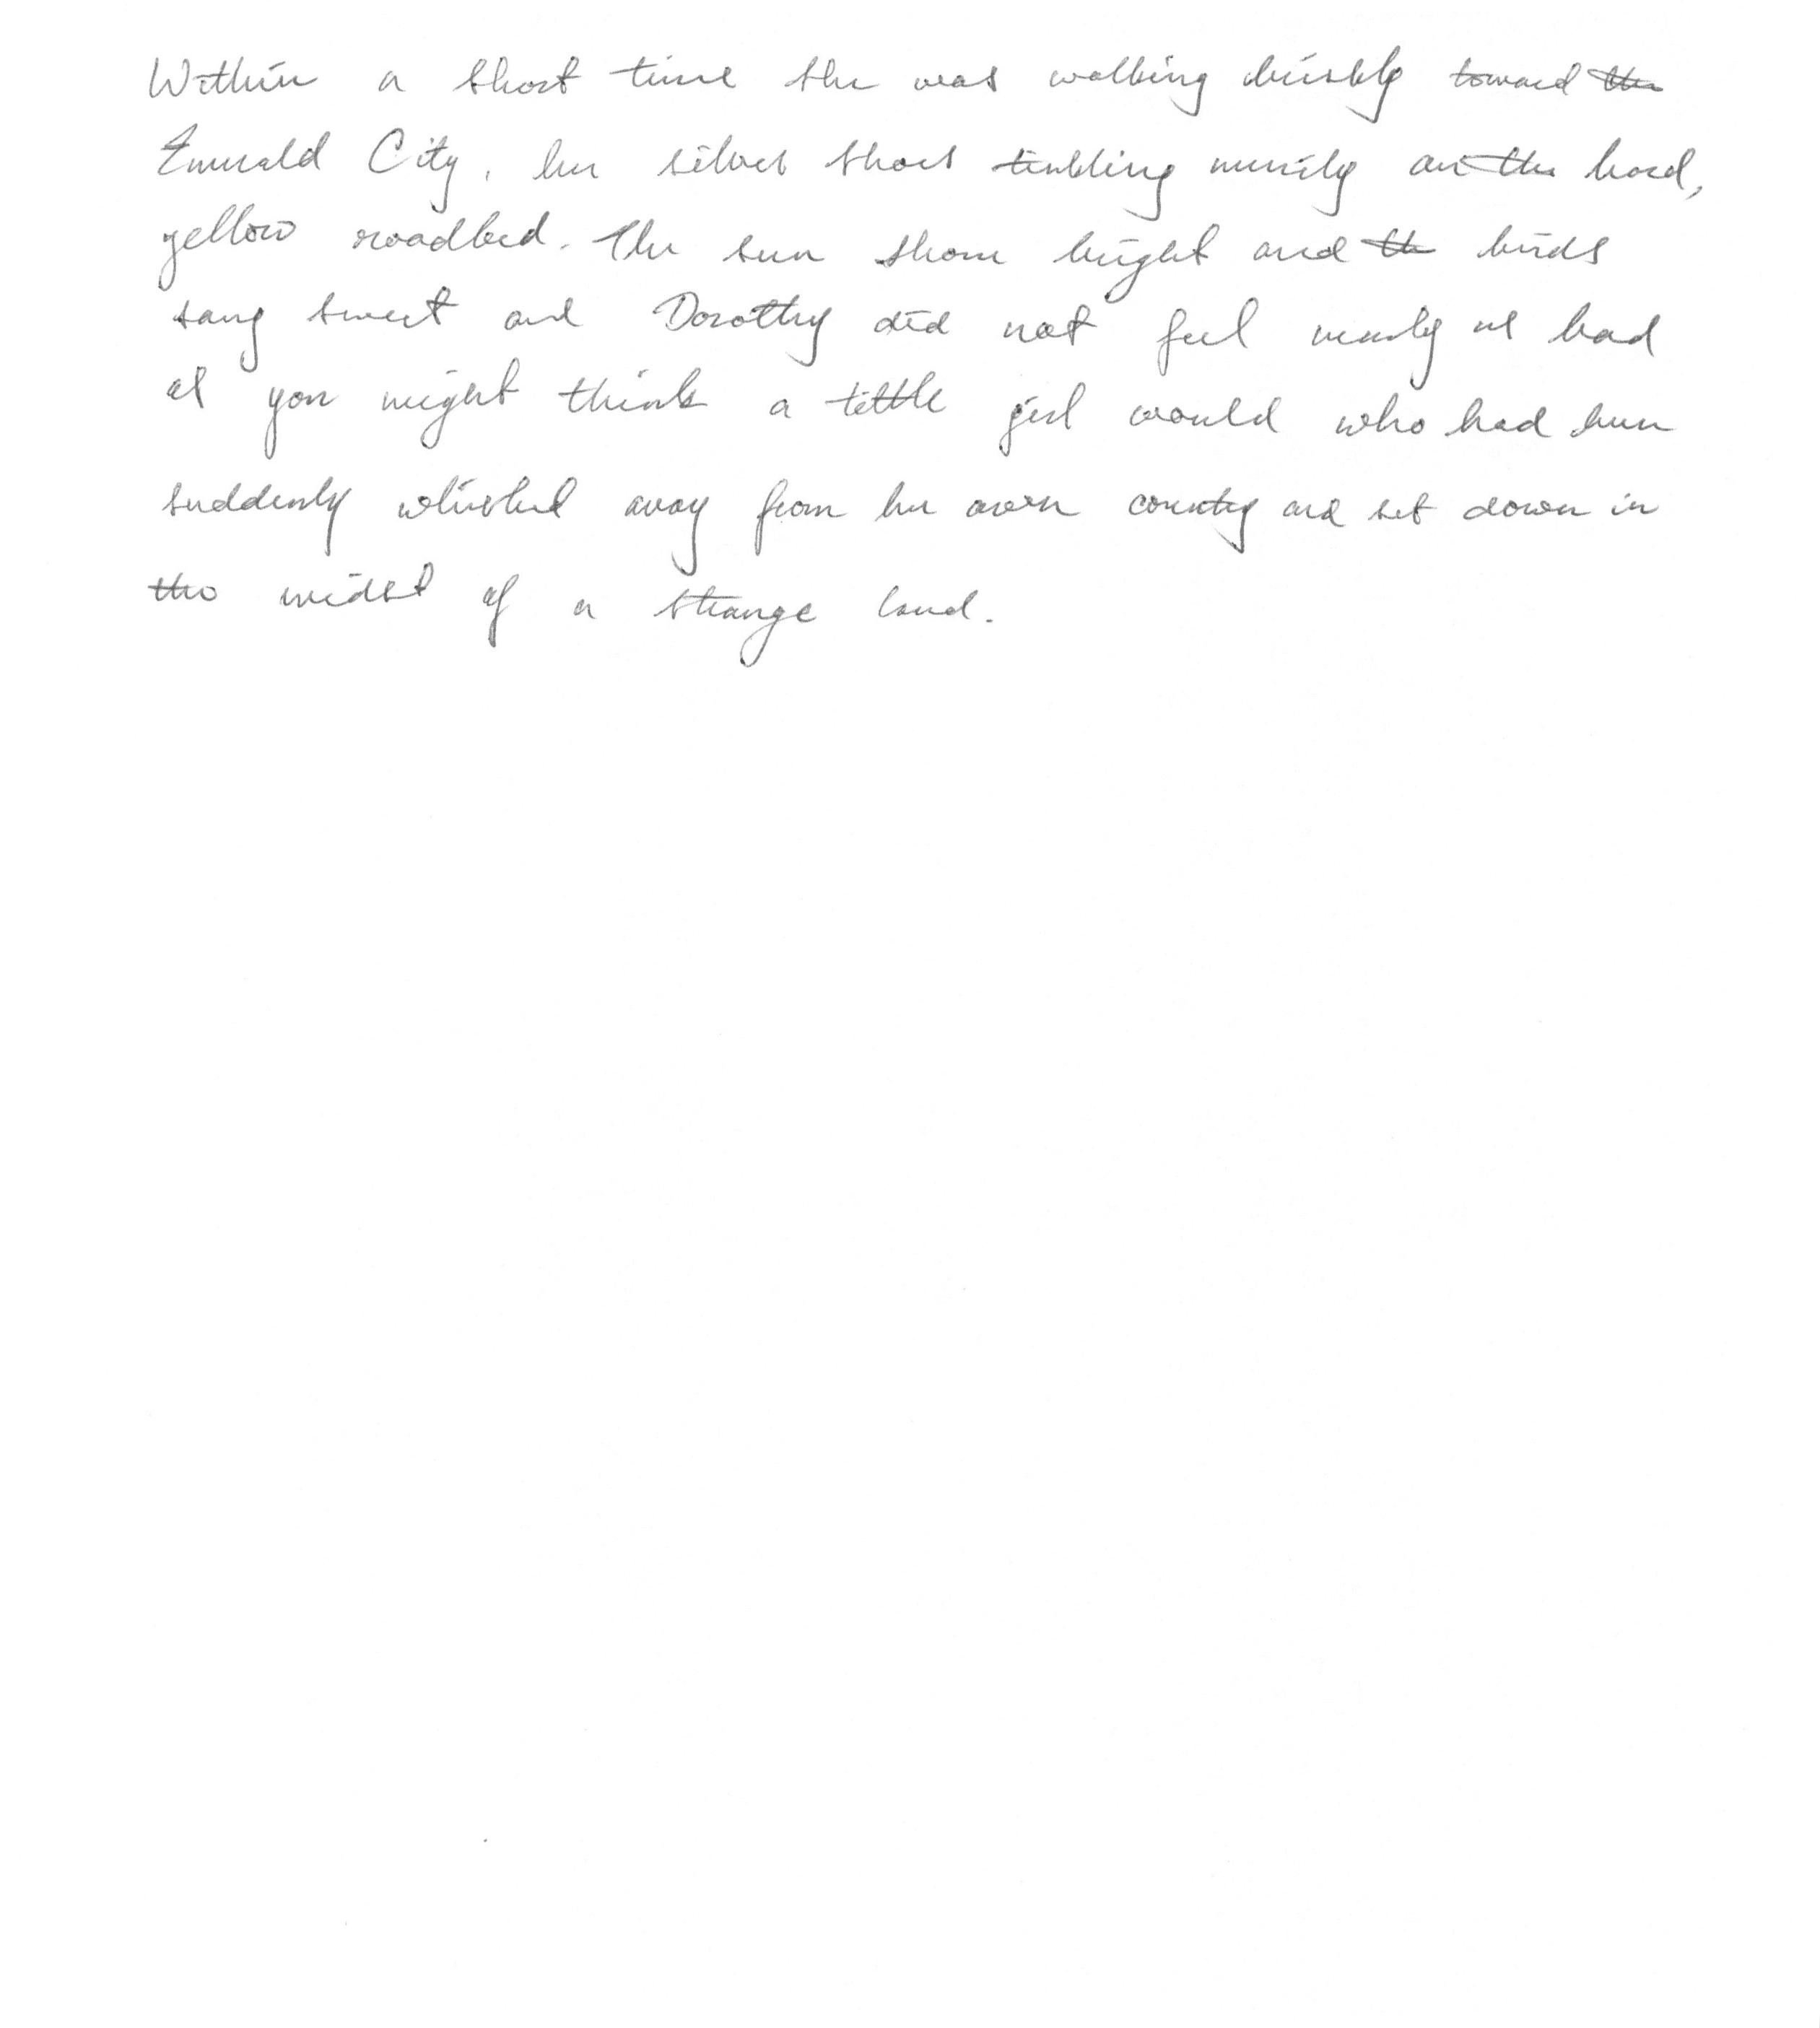 Within a short time she was walking briskly toward the
Emerald City, her silver shoes tinkling merrily on the hard,
yellow roadbed. The sun shone bright and the birds
sang sweet and Dorothy did not feel nearly as bad
as you might think a little girl would who had been
suddenly whisked away from her own country and set down in
the midst of a strange land.